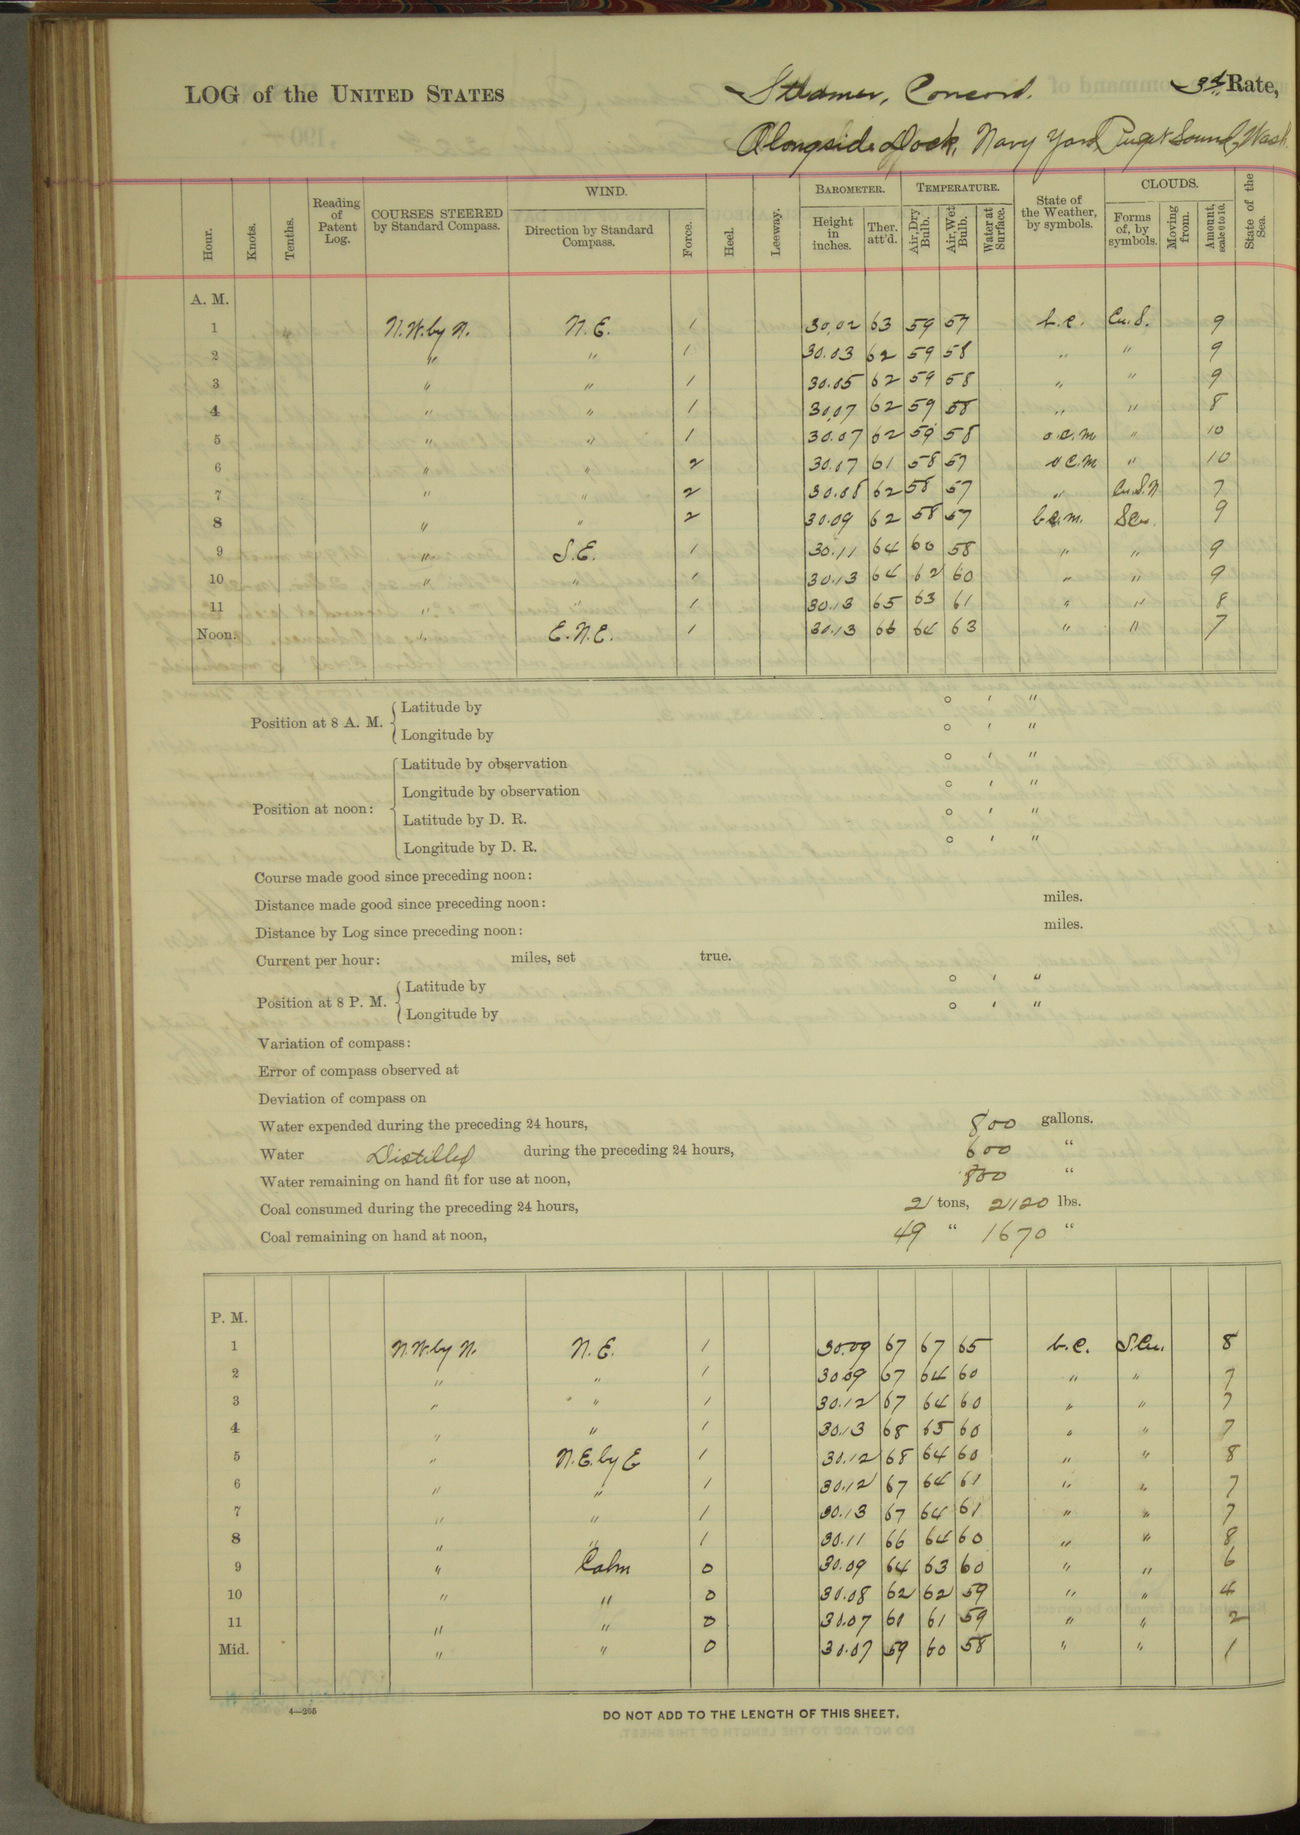 LOG of the UNITED STATES Steamer, Concord. 3d Rate,
Alongside of Dock, Navy Yard Puget Sound, Wash.
Hour. Knots. Tenths. Reading of Patent Log. COURSES STEERED by Standard Compass. WIND. Direction by Standard Compass. Force. Heel. Leeway. BAROMETER. Height in inches. Ther. att'd. TEMPERATURE. Air, Dry Bulb. Air, Wet Bulb. Water at Surface. State of the Weather, by symbols. CLOUDS. Forms of, by symbols. Moving from. Amount, scale 0 to 10. State of the Sea.
A. M.
1 N.W. by N. N.E. 1 30.02 63 59 57 b.c. Cu.S. 9
2 " " 1 30.03 62 59 58 " " 9
3 " " 1 30.05 62 59 58 " " 9
4 " " 1 30.07 62 59 58 " " 8
5 " " 1 30.07 62 59 58 o.c.m " 10
6 " " 2 30.07 61 58 57 o.c.m " 10
7 " " 2 30.08 62 58 57 " Cu.S.N 7
8 " " 2 30.09 62 58 57 b.c.m. S.Cu. 9
9 " S.E. 1 30.11 64 60 58 " " 9
10 " " 1 30.13 64 62 60 " " 9
11 " " 1 30.13 65 63 61 " " 8
Noon. " E.N.E. 1 30.13 66 64 63 " " 7
Position at 8 A. M. Latitude by ° ' "
Longitude by ° ' "
Position at noon: Latitude by observation ° ' "
Longitude by observation ° ' "
Latitude by D. R. ° ' "
Longitude by D. R. ° ' "
Course made good since preceding noon:
Distance made good since preceding noon: miles.
Distance by Log since preceding noon: miles.
Current per hour: miles, set true.
Position at 8 P. M. Latitude by ° ' "
Longitude by ° ' "
Variation of compass:
Error of compass observed at
Deviation of compass on
Water expended during the preceding 24 hours, 800 gallons.
Water Distilled during the preceding 24 hours, 600 "
Water remaining on hand fit for use at noon, 800 "
Coal consumed during the preceding 24 hours, 2 tons, 2120 lbs.
Coal remaining on hand at noon, 49 " 1670 "
P. M.
1 N.W. by N. N.E. 1 30.09 67 67 65 b.c. S.Cu. 8
2 " " 1 30.09 67 64 60 " " 7
3 " " 1 30.12 67 64 60 " " 7
4 " " 1 30.13 68 65 60 " " 7
5 " N.E. by E 1 30.12 68 64 60 " " 8
6 " " 1 30.12 67 64 61 " " 7
7 " " 1 30.13 67 64 61 " " 7
8 " " 1 30.11 66 64 60 " " 8
9 " Calm 0 30.09 64 63 60 " " 6
10 " " 0 30.08 62 62 59 " " 4
11 " " 0 30.07 60 61 59 " " 2
Mid. " " 0 30.07 59 60 58 " " 1
4—265 DO NOT ADD TO THE LENGTH OF THIS SHEET.